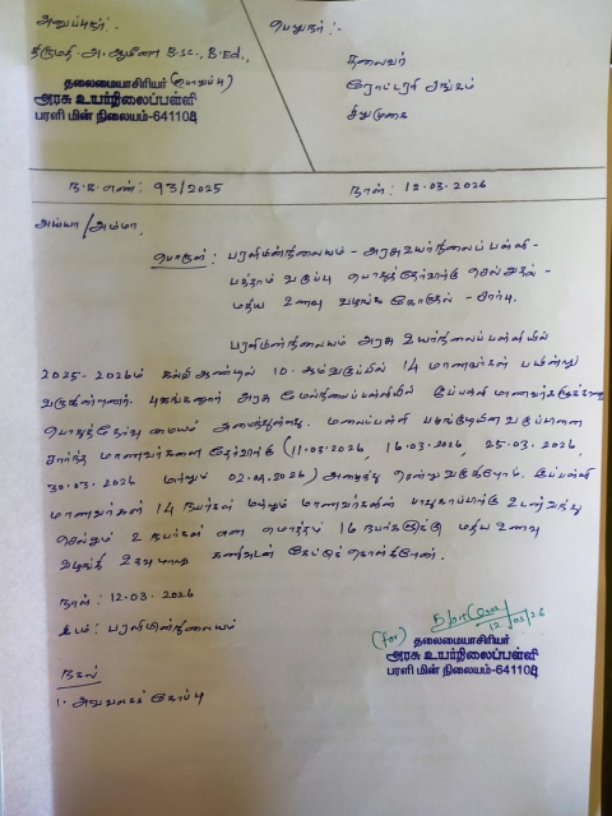 அனுப்புநர் :-
திருமதி. அ. ஆமினா B.Sc., B.Ed.,
தலைமையாசிரியர் (பொறுப்பு)
அரசு உயர்நிலைப்பள்ளி
பரளி மின் நிலையம்-641104
பெறுநர் :-
தலைவர்
ரோட்டரி சங்கம்
சிறுமுகை
ந.க.எண்: 93/2025
நாள் : 12.03.2026
அய்யா / அம்மா,
பொருள் : பரளிமின்நிலையம் - அரசு உயர்நிலைப் பள்ளி -
பத்தாம் வகுப்பு பொதுத்தேர்விற்கு செல்லுதல் -
மதிய உணவு வழங்க கோருதல் - சார்பு.
பரளிமின்நிலையம் அரசு உயர்நிலைப்பள்ளியில்
2025-2026ம் கல்வி ஆண்டில் 10-ஆம் வகுப்பில் 14 மாணவர்கள் பயின்று
வருகின்றனர். அரசு மேல்நிலைப்பள்ளியில் இப்பள்ளி மாணவர்களுக்கான
பொதுத்தேர்வு மையம் அமைந்துள்ளது. பழங்குடியின வகுப்பினை
சார்ந்த மாணவர்களை தேர்விற்கு (11.03.2026, 16.03.2026, 25.03.2026,
30.03.2026 மற்றும் 02.04.2026) அழைத்து சென்று வருகிறோம். இப்பள்ளி
மாணவர்கள் 14 நபர்கள் மற்றும் மாணவர்களின் பாதுகாப்பிற்கு உடன் வந்து
செல்லும் 2 நபர்கள் என மொத்தம் 16 நபர்களுக்கு மதிய உணவு
வழங்கி உதவுமாறு கனிவுடன் கேட்டுக் கொள்கிறேன்.
நாள் : 12.03.2026
இடம் : பரளிமின்நிலையம்
12/03/26
(for) தலைமையாசிரியர்
அரசு உயர்நிலைப்பள்ளி
பரளி மின் நிலையம்-641104
நகல்
1. அலுவலகக் கோப்பு